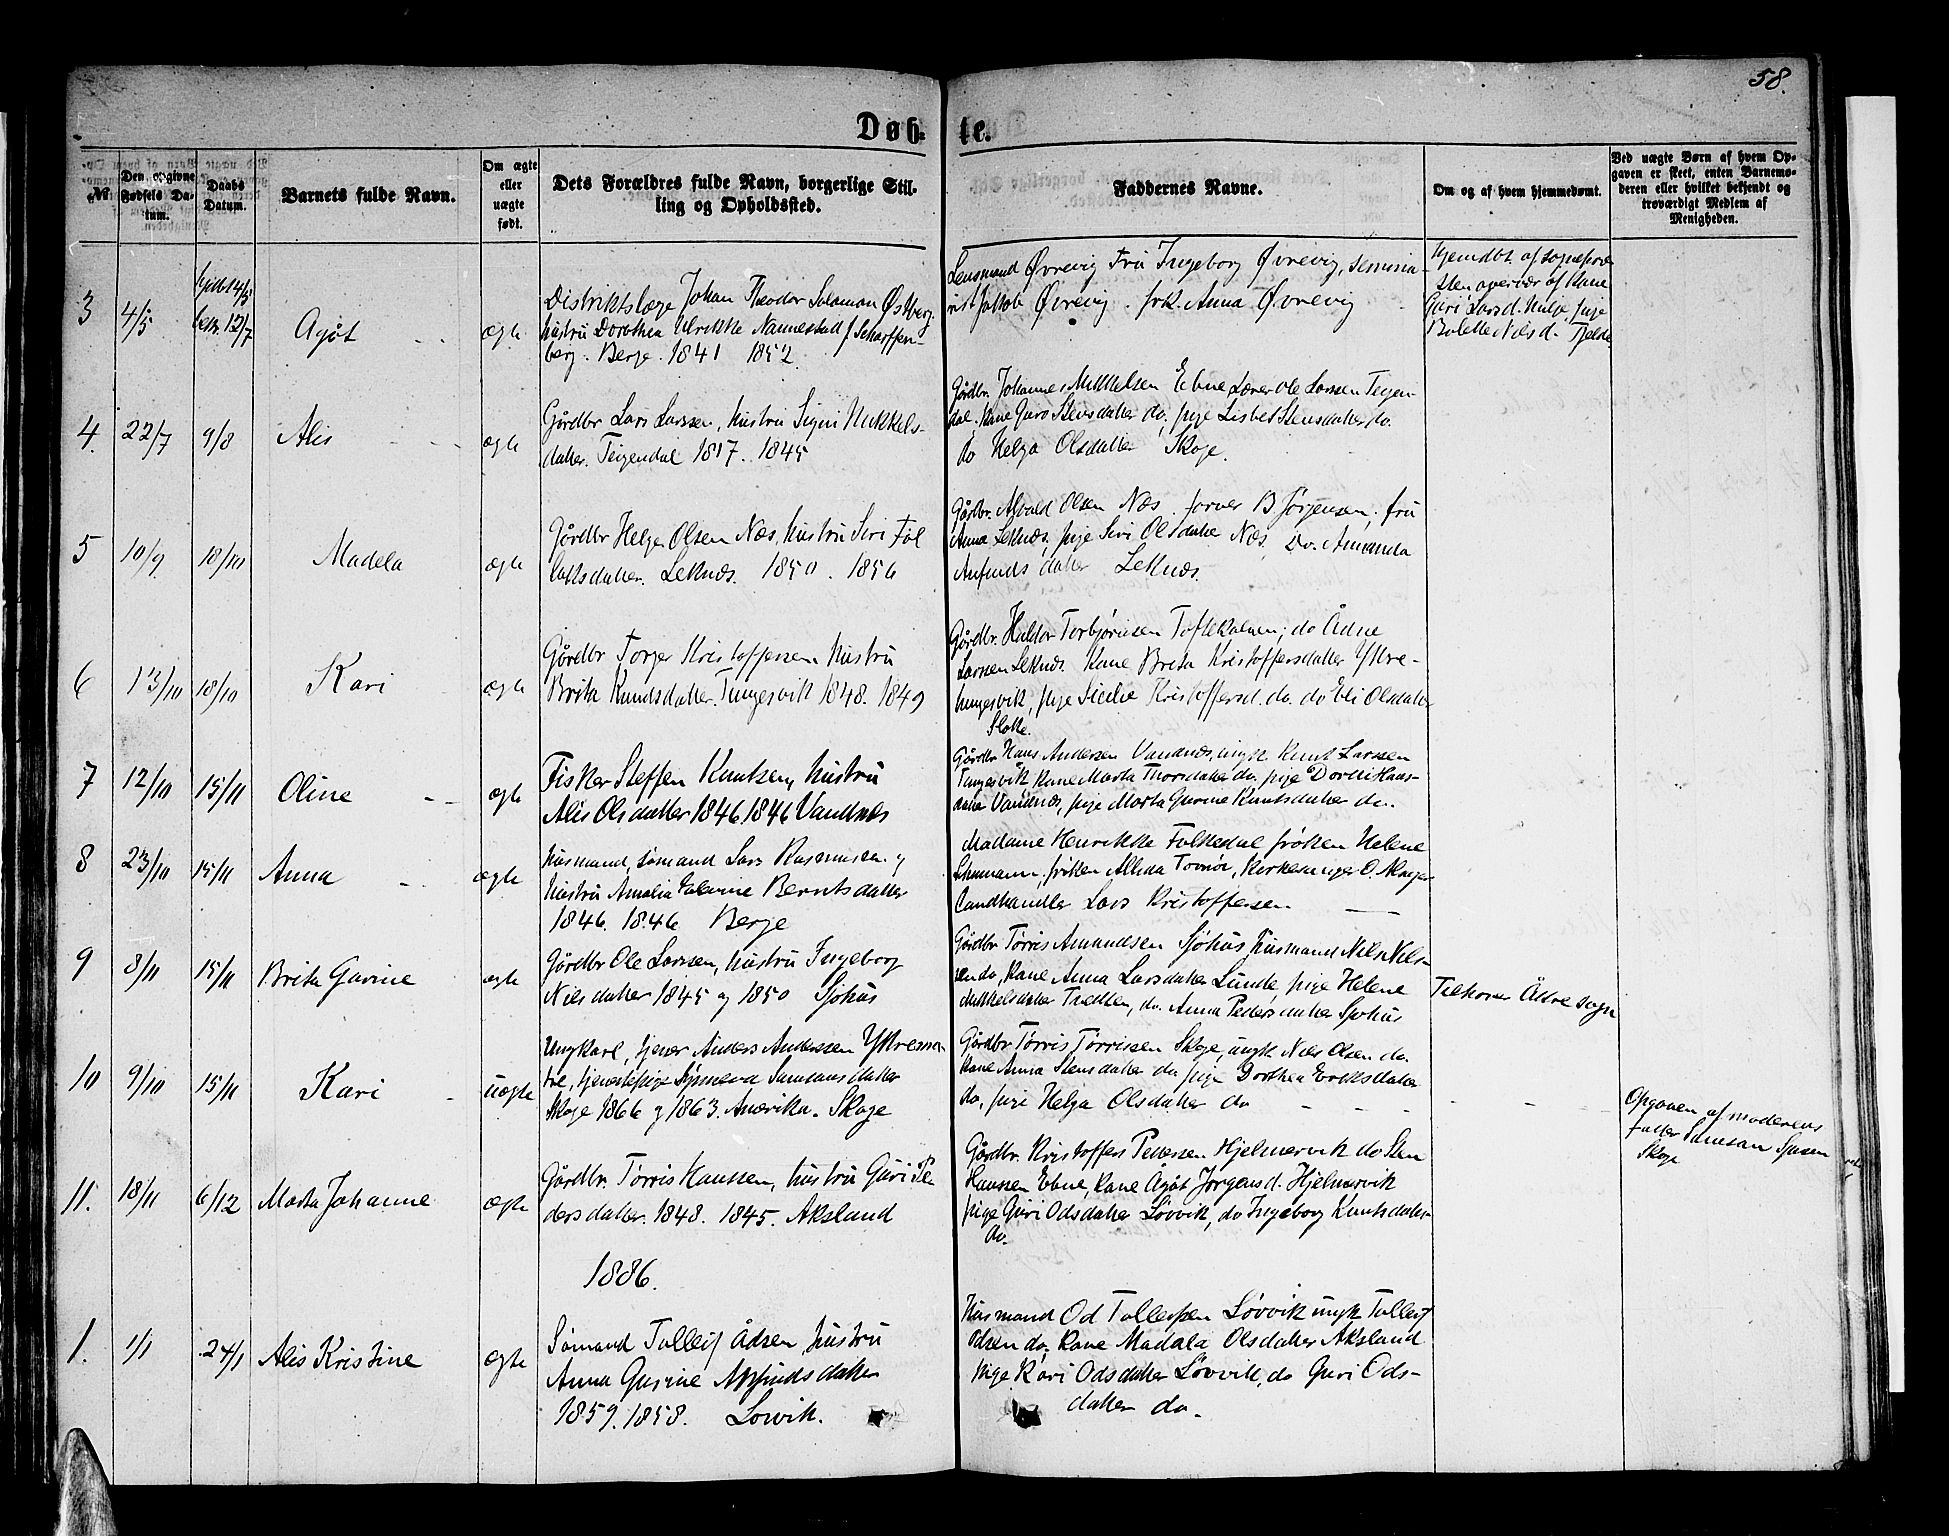 58.
Døb- te.
№
Den opgivne Fødsels Datum.
Daabs Datum.
Barnets fulde Navn.
Om ægte eller uægte født.
Dets Forældres fulde Navn, borgerlige Stilling og Opholdssted.
Faddernes Navne.
Om og af hvem hjemmedøbt.
Ved uægte Børn af hvem Opgaven er skeet, enten Barnemoderen eller hvilket bekjendt og troværdigt Medlem af Menigheden.
3 4/5 hjdbt 14/5
bekr. 12/7 Agøt ægte
Distriktslæge Johan Theodor Salamon Østberg,
hustru Dorothea Ulrikke Nannestad f Scharffen-
berg. Berge. 1841 1852
Lensmand Øvrevig Fru Ingeborg Øvrevig, semina-
rist Jakob Øvrevig. frk. Anna Øvrevig
Hjemdbt. af sognepræ
sten overvær af Kane
Guri Larsd. Helge, pige
Bolette Nilsd. Fjelde
4. 22/7 9/8 Alis ægte
Gårdbr Lars Larssen, hustru Siguri Mikkels-
datter. Teigendal 1817. 1845
Gårdbr. Johannes Mikkelsen Ebne Lærer Ole Larssen Teigen-
dal, Kane Guro Stensdatter do, pige Lisbet Stensdatter do.
do Helga Olsdatter Skoge.
5 10/9 18/10 Madela ægte
Gårdbr Helge Olsen Næs, hustru Siri Fol
laksdatter. Leknæs. 1850. 1856
Gårdbr. Alvald Olsen Næs. B Jørgensen, fru
Anna Leknæs, pige Siri Olsdatter Næs. Do. Amanda
Anfinds datter Leknæs.
6 13/10 18/10 Kari ægte
Gårdbr Torger Kristoffersen hustru
Brita Knudsdatter. Tungesvik 1848. 1849
Gårdbr. Haldor Torbjörnsen Toftekalven; do Ådne
Larssen Leknæs. Kane Brita Kristoffersdatter Yttre-
tungesvik, pige Sicilie Kristoffersd. do. do Eli Olsdatter
Slotte.
7 12/10 15/11 Oline ægte
Fisker Steffen Knutsen, hustru
Alis Olsdatter 1846 1846 Vandnes
Gårdbr Hans Andersen Vandnæs, ungk Knut Larssen
Tungesvik, Kane Marta Thorsdatter do. pige Dorthi Hans-
datter Vandnæs, pige Marta Gurine Knutsdatter do.
8 23/10 15/11 Anna ægte
husmand, sømand Lars Rasmussen og
hustru Amalia Berntsdatter
1846. 1846 Berge
Madame Henrikke Folkedal frøken Helene
Schumann, frøken Allida Tornøe, Kirkesanger O. Skoge
Landhandler Lars Kristoffersen
9 8/11 15/11 Brita Gurine ægte
Gårdbr Ole Larssen, hustru Ingeborg
Nilsdatter 1845 og 1850 Sjøhus
Gårdbr Tørris Amundsen Sjøhus husmand Nils Nils-
sen do, Kane Anna Larsdatter Lunde, pige Helene
Mikkelsdatter Tredten, do. Anna Peders datter Sjøhus
Tilhører Åkre sogn
10 9/10 15/11 Kari uægte
Ungkarl, tjener Anders Anderssen Yttresan
tre, tjenestepige Synneva Samsons datter
Skoge 1866 og 1863. Amerika. Skoge
Gårdbr Tørris Tørrissen Skoge, ungk. Nils Olsen do.
Kane Anna Stensdatter do, pige Dorthea Eriksdatter
do, pige Helga Olsdatter do
Opgaven af moderens
fader Samson Sjursen
Skoge
11. 18/11 6/12 Marta Johanne ægte
Gårdbr. Tørris Hanssen, hustru Guri Pe
dersdatter. 1848. 1845. Aksland
Gårdbr. Kristoffers Pedersen Hjelmervik do Sten
Hanssen Ebne, Kane Ågåt Jørgensd. Hjelmervik
pige Guri Odsdatter Løvvik, do Ingeborg Knutsdatter
do.
1886.
1. 1/1 24/1 Alis Kristine ægte
Sømand Tolleif Ådsen, hustru
Anna Gurine Arfindsdatter
1859. 1858. Løvvik.
Husmand Od Tolleifsen Løvvik ungk Tolleif
Odsen do, Kane Madala Olsdatter Aksland
Pige Kari Odsdatter Løvvik, do Guri Ods-
datter do.